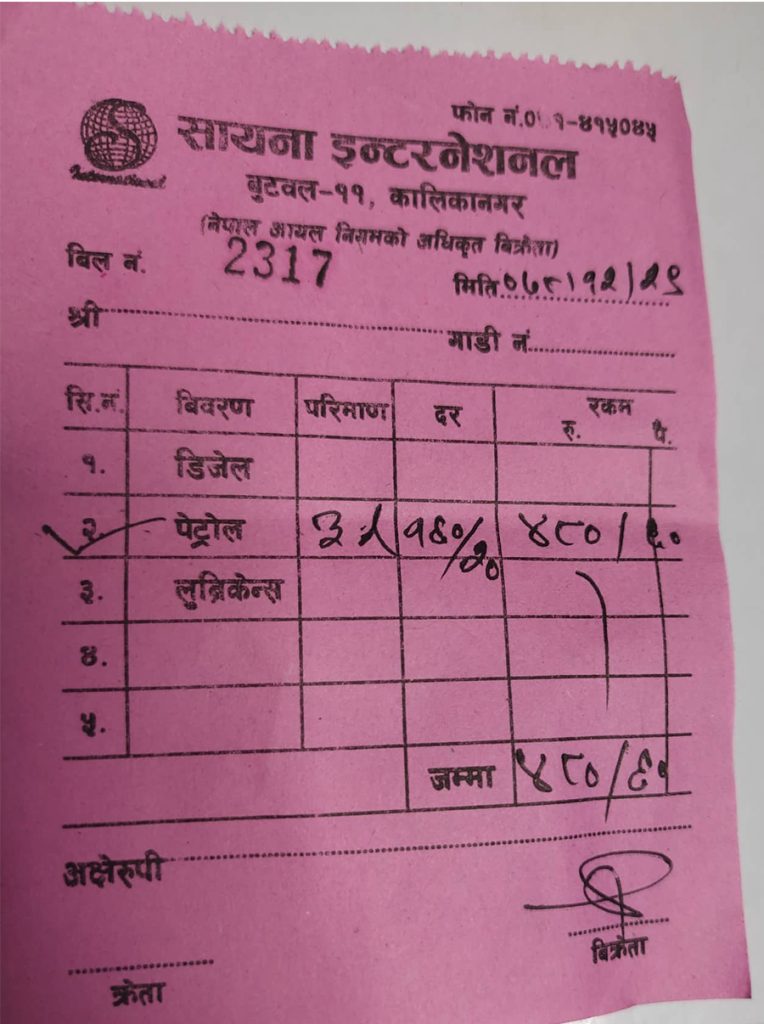 फोन नं.०७१-४१५०४५
सायना इन्टरनेशनल
International
बुटवल-११, कालिकानगर
(नेपाल आयल निगमको अधिकृत बिक्रेता)
बिल नं. 2317
मिति ०७८।१२।२९
श्री
गाडी नं.
सि.नं. बिवरण परिमाण दर रकम
रु. पै.
१. डिजेल
२. पेट्रोल ३ १६०/२० ४८०/६०
३. लुब्रिकेन्स
४.
५.
जम्मा ४८०/६०
अक्षेरुपी
बिक्रेता
क्रेता